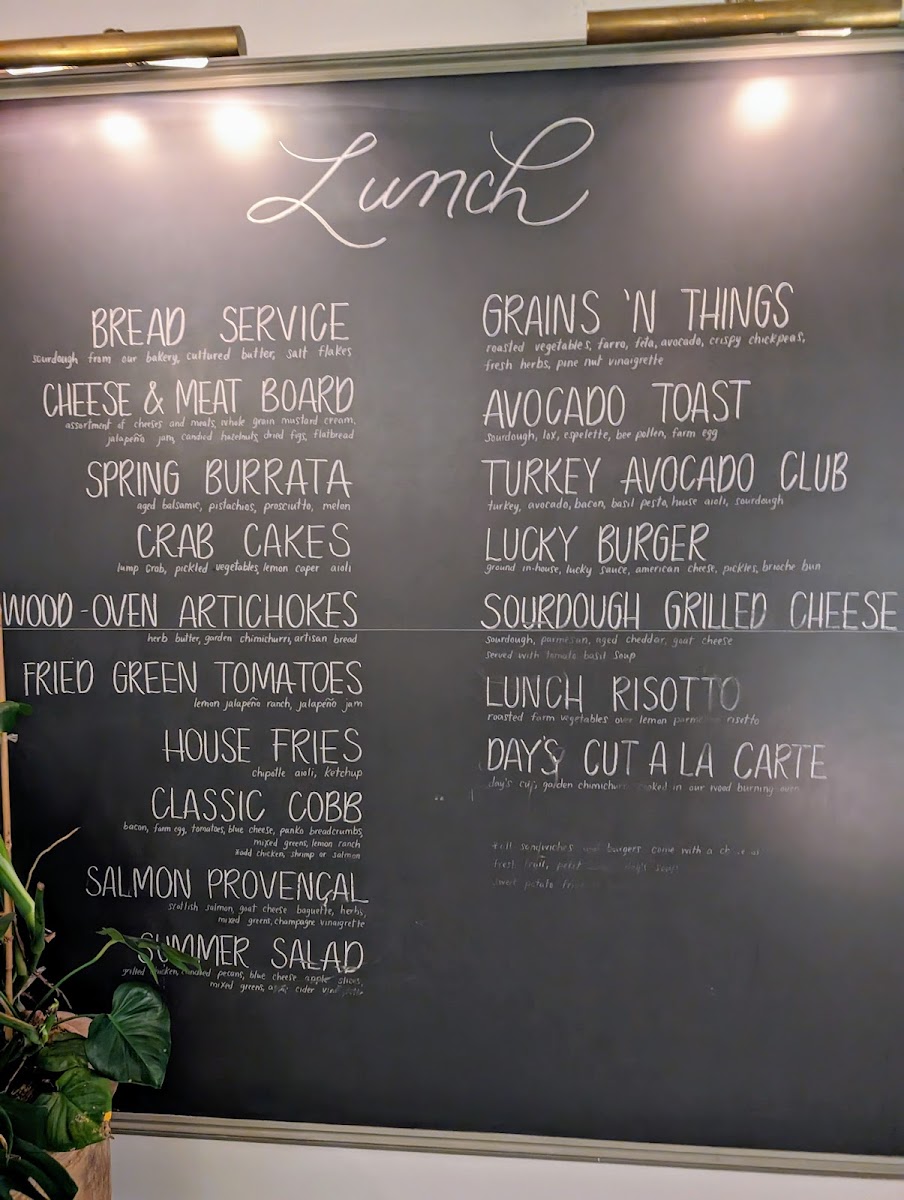 Lunch
BREAD SERVICE
sourdough from our bakery, cultured butter, salt flakes
CHEESE & MEAT BOARD
assortment of cheeses and meats, whole grain mustard cream,
jalapeño jam, candied hazelnuts, dried figs, flatbread
SPRING BURRATA
aged balsamic, pistachios, prosciutto, melon
CRAB CAKES
lump crab, pickled vegetables, lemon caper aioli
WOOD-OVEN ARTICHOKES
herb butter, garden chimichurri, artisan bread
FRIED GREEN TOMATOES
lemon jalapeño ranch, jalapeño jam
HOUSE FRIES
chipotle aioli, ketchup
CLASSIC COBB
bacon, farm egg, tomatoes, blue cheese, panko breadcrumbs,
mixed greens, lemon ranch
*add chicken, shrimp or salmon
SALMON PROVENÇAL
scottish salmon, goat cheese baguette, herbs,
mixed greens, champagne vinaigrette
SUMMER SALAD
grilled chicken, candied pecans, blue cheese apple slices,
mixed greens, apple cider
GRAINS 'N THINGS
roasted vegetables, farro, feta, avocado, crispy chickpeas,
fresh herbs, pine nut vinaigrette
AVOCADO TOAST
sourdough, lox, espelette, bee pollen, farm egg
TURKEY AVOCADO CLUB
turkey, avocado, bacon, basil pesto, house aioli, sourdough
LUCKY BURGER
ground in-house, lucky sauce, american cheese, pickles, brioche bun
SOURDOUGH GRILLED CHEESE
sourdough, parmesan, aged cheddar, goat cheese
served with tomato basil soup
LUNCH RISOTTO
roasted farm vegetables over lemon parmesan risotto
DAY'S CUT A LA CARTE
day's cut, garden chimichurri cooked in our wood burning oven
*all sandwiches and burgers come with a
fresh fruit, petit day's soup
sweet potato